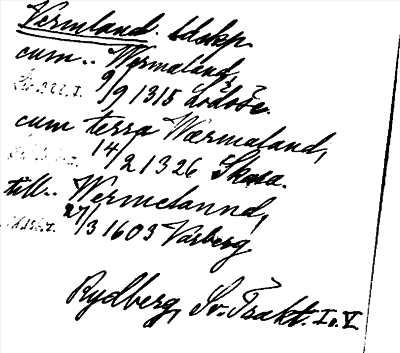 Vermland. Ldskp.
cum.. Wermaland,
9/9 1315 Lödöse.
cum terra Wærmaland,
14/2 1326 Skara.
till.. Wermelannd,
27/3 1603 Varberg.
Rydberg, Sv. Trakt. I o. V